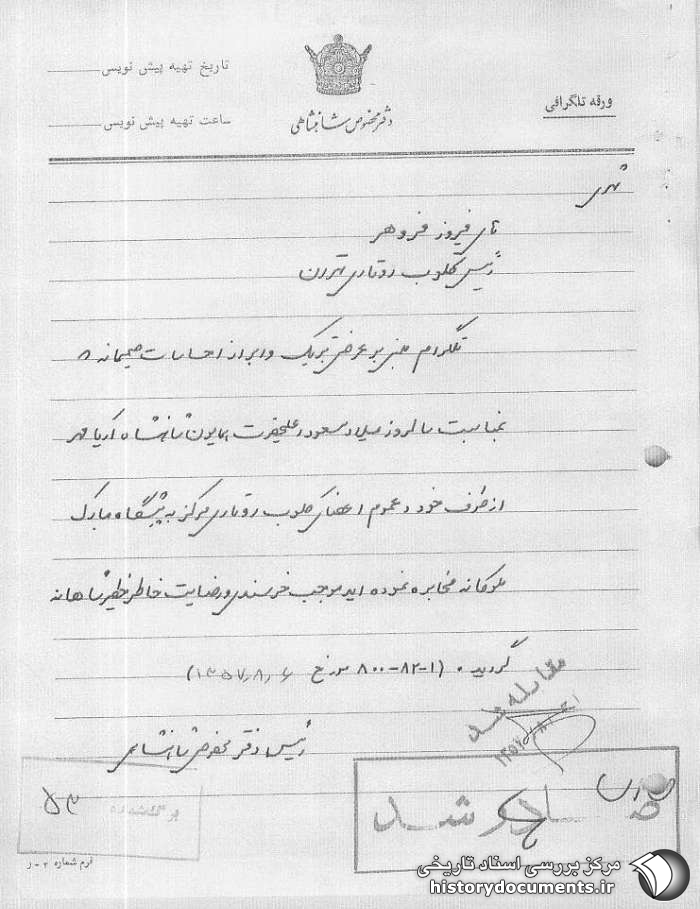 ورقه تلگرافی
دفتر مخصوص شاهنشاهی
تاریخ تهیه پیش نویس
ساعت تهیه پیش نویس
تهران
آقای فیروز فروهر
رئیس کلوب روتاری تهران
تلگرام مبنی بر عرض تبریک و ابراز احساسات صمیمانه
بمناسبت سالروز میلاد مسعود اعلیحضرت همایون شاهنشاه آریامهر
از طرف خود و عموم اعضای کلوب روتاری مرکز به پیشگاه مبارک
ملوکانه مخابره نموده اید موجب خرسندی و رضایت خاطر خطیر شاهانه
گردید. (۱-۸۲-۸۰۰ مورخ ۱۳۵۷٫۸٫۶)
رئیس دفتر مخصوص شاهنشاهی
مقابله شد
صادر شد
۵۳
فرم شماره ۲-ر
مرکز بررسی اسناد تاریخی
historydocuments.ir